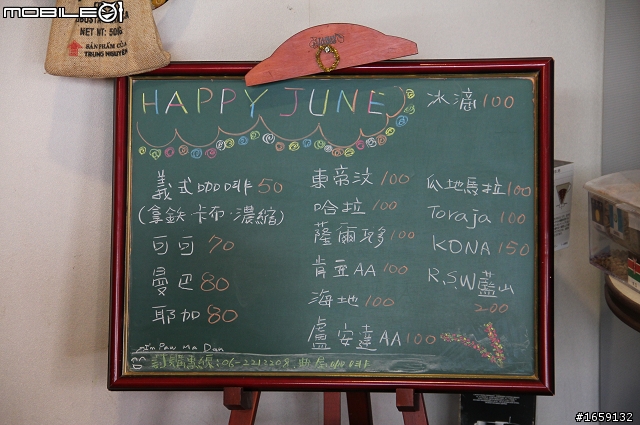 MOBILE01
NET WT: 50
SẢN PHẨM CỦA
TRUNG NGUYÊN
HAPPY JUNE
義式咖啡 50
(拿鉄·卡布·濃縮)
可可 70
曼巴 80
耶加 80
東帝汶 100
哈拉 100
薩爾瓦多 100
肯亞AA 100
海地 100
盧安達AA 100
冰滴 100
瓜地馬拉 100
Toraja 100
KONA 150
R.S.W藍山
200
訂購專線:06-2213208
#1659132